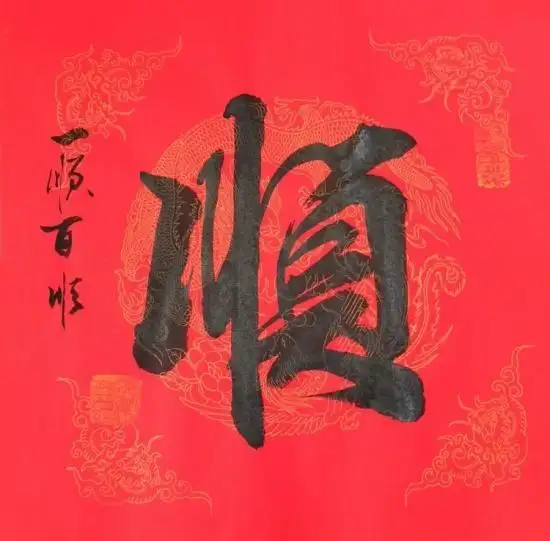 順
一顺百顺